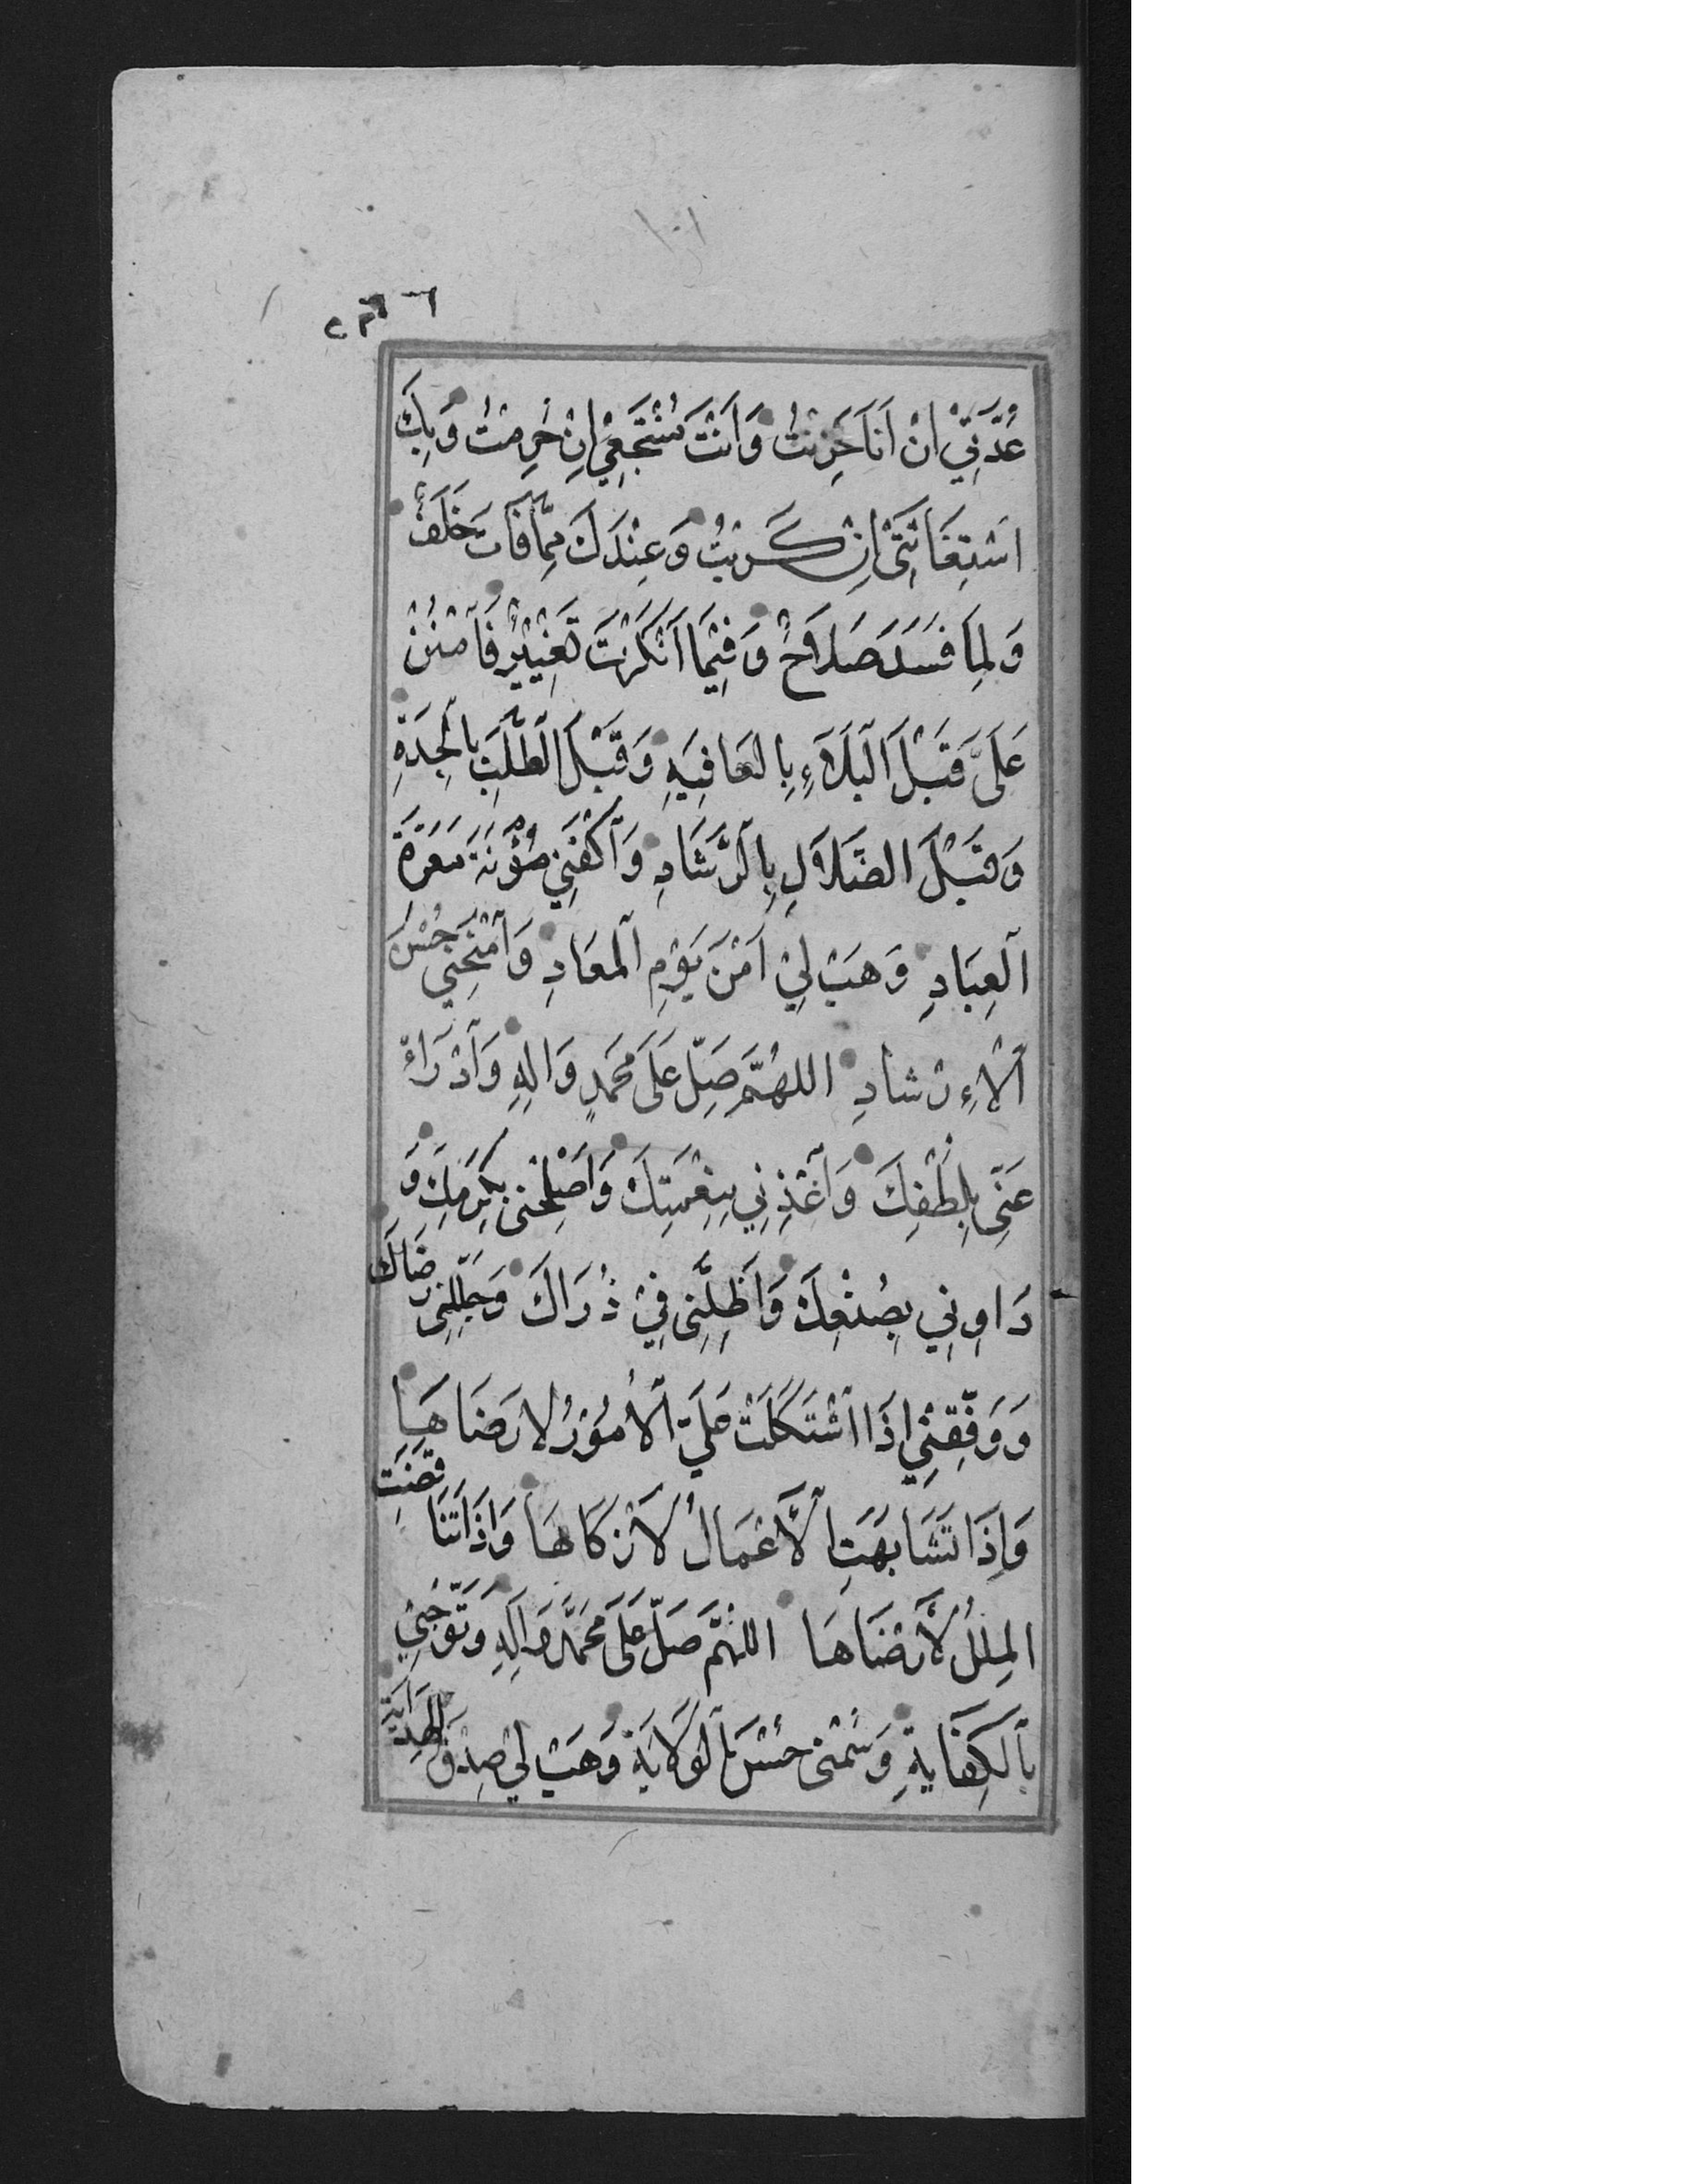 ١٠١
عُدَّتِيْ اِنْ اَنَا حَزِنْتُ وَاَنْتَ مُنْتَجَعِيْ اِنْ حُرِمْتُ وَبِكَ
اسْتِغَاثَتِيْ اِنْ كَرِثْتُ وَعِنْدَكَ مِمَّا فَاتَ خَلَفٌ
وَلِمَا فَسَدَ صَلَاحٌ وَفِيْمَا اَنْكَرْتَ تَغْيِيْرٌ فَامْنُنْ
عَلَىَّ قَبْلَ الْبَلَآءِ بِالْعَافِيَهِ وَقَبْلَ الْطَّلَبِ بِالْجِدَةِ
وَقَبْلَ الضَّلَالِ بِالرَّشَادِ وَاكْفِنِيْ مَؤُنَةَ مَعَرَّةِ
الْعِبَادِ وَهَبْ لِيْ اَمْنَ يَوْمِ الْمَعَادِ وَامْنَحْنِيْ حُسْنَ
الْاِرْشَادِ اللهُمَّ صَلِّ عَلَى مُحَمَدٍ وَالِهِ وَادْرَاْ
عَنِّى بِلُطْفِكَ وَاغْذِنِي بِنِعْمَتِكَ وَاَصْلِحْنِى بِكَرَمِكَ وَ
دَاوِنِي بِصُنْعِكَ وَاَظِلَّنِى فِيْ ذُرَاكَ وَجَلِّلْنِى رِضَاكَ
وَوَفِّقْنِيْ اِذَا اشْتَكَلَتْ عَلَيَّ الْاُمُوْرُ لِاَرْضَاهَا
وَاِذَا تَشَابَهَتِ الْاَعْمَالُ لِاَزْكَاهَا وَاِذَا تَنَاقَضَتِ
الْمِلَلُ لِاَرْضَاهَا اللهُمَّ صَلِّ عَلَى مُحَمَّدٍ وَالِهِ وَتَوِّجْنِيْ
بِالْكِفَايَةِ وَسُمْنِى حُسْنَ الْوِلَايَةِ وَهَبْ لِيْ صِدْقَ الْهِدَايَةِ